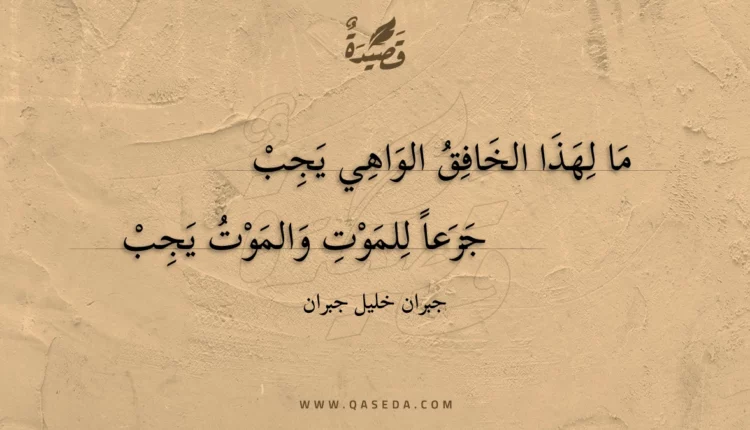 قَصِيدَةٌ
مَا لِهَذَا الخَافِقُ الوَاهِي يَجِبْ
جَزَعاً لِلمَوْتِ وَالمَوْتُ يَجِبْ
جبران خليل جبران
WWW.QASEDA.COM